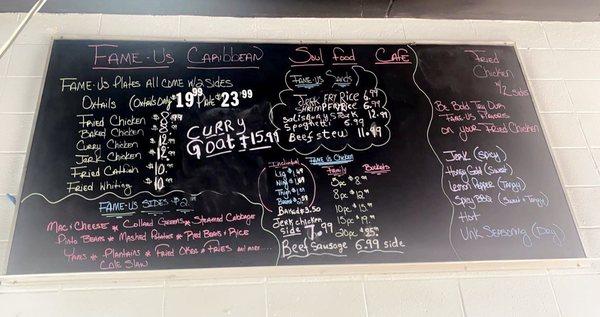 Fame-Us Caribbean Soul Food Cafe
Fame-Us Plates all come w/2 sides
Oxtails (Oxtails Only $19.99 Plate $23.99
Fried Chicken $8
Baked Chicken $8
Curry Chicken $12
Jerk Chicken $12
Fried Catfish $10
Fried Whiting $10
Curry
Goat $15.99
Fame-Us Sides $2
Mac & Cheese * Collard Greens * Steamed Cabbage
Pinto Beans * Mashed Potatoes * Pied Beans & Rice
Yams * Plantains * Fried Okra & Fries and more....
Cole Slaw
Fame-Us
Jerk Fry Rice 6.99
Shrimp Fry Rice 6.99
Salisbury Steak 12.99
Spaghetti 6.99
Beef stew 11.99
Individual
Leg $1.49
Baked $3.50
Jerk chicken
side 7.99
Beef Sausage 6.99 side
Fame Us Chicken
Family Buckets
8pc
8pc $12
10pc
15pc $19
20pc
Fried
Chicken
w/2 sides
Be Bold Try Our
Fame-Us Flavors
on your Fried Chicken
Jerk (Spicy)
Honey Gold (Sweet)
Lemon Pepper (Tangy)
Spicy BBQ (Sweet & Tangy)
Hot
Unk Seasoning (Dry)